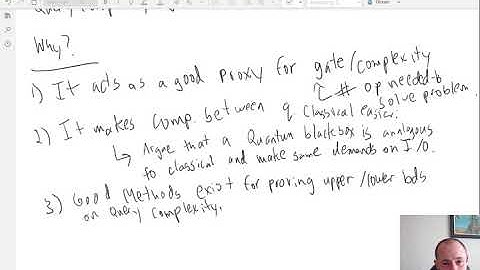 Why?
1) It acts as a good proxy for gate/complexity
# op needed to solve problem.
2) It makes comp. between q Classical easier.
Argue that a Quantum blackbox is analogous
to classical and make same demands on I/O.
3) Good Methods exist for proving upper/lower bds
on Query Complexity.